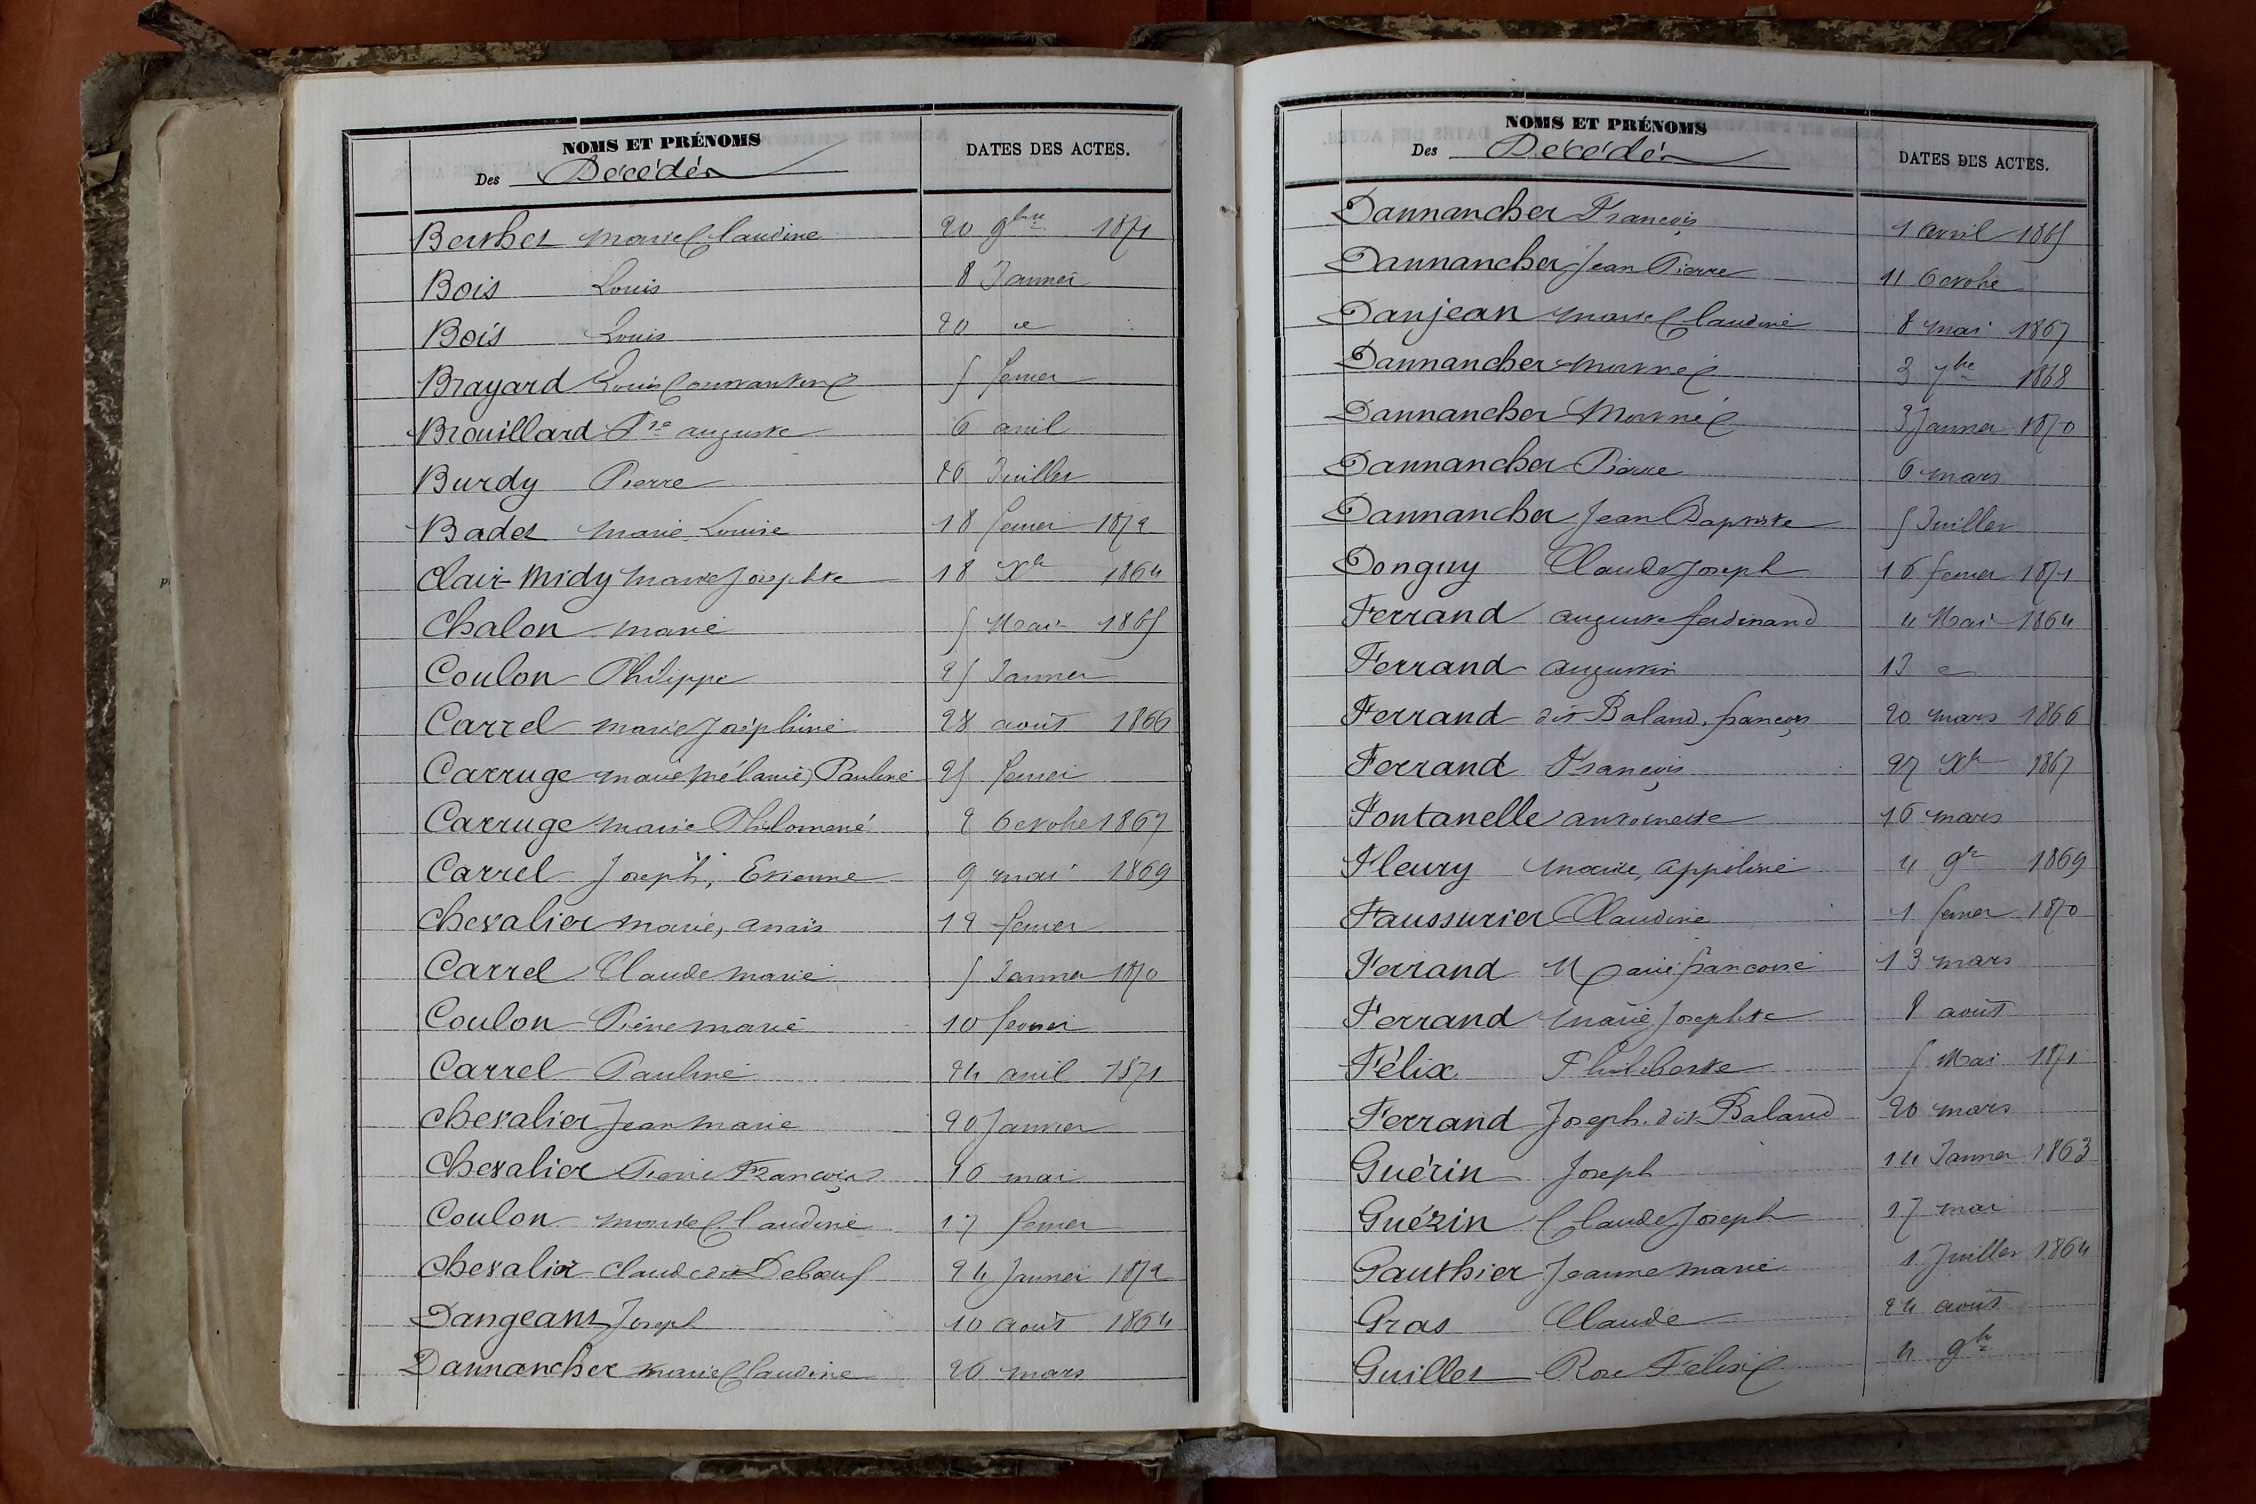 NOMS ET PRÉNOMS
Des Décédés
DATES DES ACTES.
Berthet Marie Claudine 20 9bre 1871
Bois Louis 8 Janvier
Bois Louis 20 d
Brayard Louis Constantin 5 fevrier
Brouillard Pre auguste 6 avril
Burdy Pierre 26 Juillet
Badet Marie Louise 18 fevrier 1872
Clair-Midy Marie Josephte 18 Xbre 1864
Chalon Marie 5 Mai 1865
Coulon Philippe 25 Janvier
Carrel Marie Joséphine 28 août 1866
Carruge Marie Mélanie, Pauline 25 fevrier
Carruge Marie Philomene 2 8crobre 1867
Carrel Joseph, Etienne 9 mai 1869
Chevalier Marie, anaïs 12 fevrier
Carrel Claude Marie 5 Janvier 1870
Coulon Pierre Marie 10 fevrier
Carrel Pauline 24 avril 1871
Chevalier Jean Marie 20 Janvier
Chevalier Pierre François 10 mai
Coulon Marie Claudine 17 fevrier
Chevalier Claude dit Debœuf 24 Janvier 1872
Dangeant Joseph 10 août 1864
Dannancher Marie Claudine 26 mars
NOMS ET PRÉNOMS
Des Décédés
DATES DES ACTES.
Dannancher François 1 avril 1865
Dannancher Jean Pierre 11 Octobre
Danjean Marie Claudine 8 mai 1867
Dannancher Mort né 3 7bre 1868
Dannancher Mort né 3 Janvier 1870
Dannancher Pierre 6 mars
Dannancher Jean Baptiste 5 Juillet
Donguy Claude Joseph 16 fevrier 1871
Ferrand auguste ferdinand 4 Mai 1864
Ferrand augustin 13 d
Ferrand dit Baland, françois 20 mars 1866
Ferrand François 27 Xbre 1867
Fontanelle antoinette 16 mars
Fleury Marie, appoline 4 9bre 1869
Faussurier Claudine 1 fevrier 1870
Ferrand Marie françoise 13 mars
Ferrand Marie Josephte 8 août
Félix Philiberte 5 Mai 1871
Ferrand Joseph dit Baland 20 mars
Guérin Joseph 14 Janvier 1863
Guérin Claude Joseph 17 mai
Gauthier Jeanne Marie 1 Juillet 1864
Gras Claude 24 août
Guillet Rose Félise 4 9bre